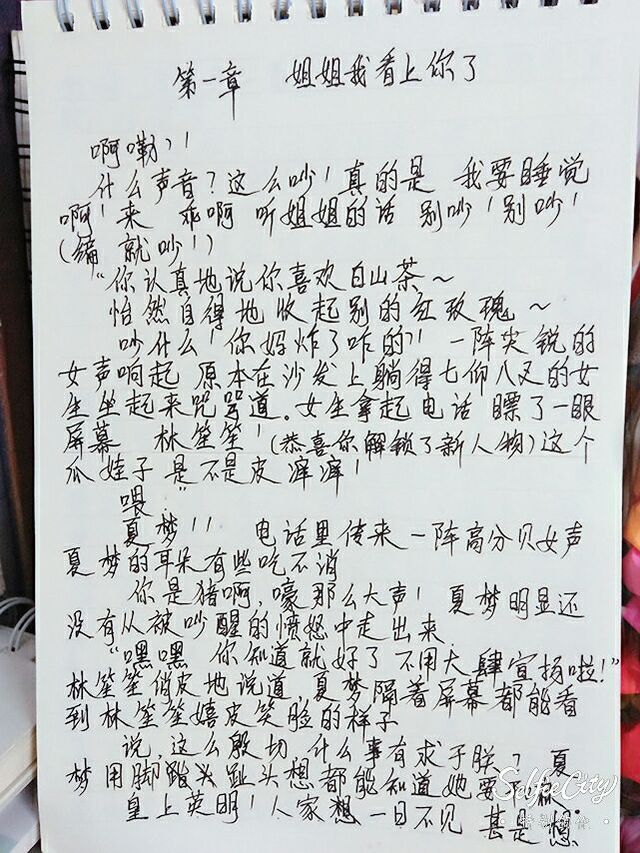 第一章 姐姐我看上你了
啊嘞?!
什么声音?这么吵!真的是 我要睡觉
啊!来 乖啊 听姐姐的话 别吵!别吵!
(编 就吵!)
“你认真地说你喜欢白山茶~
怡然自得地收起别的红玫瑰~
吵什么!你妈炸了咋的?! 一阵尖锐的
女声响起 原本在沙发上躺得七仰八叉的女
生坐起来咒骂道。女生拿起电话 瞟了一眼
屏幕 林笙笙!(恭喜你解锁了新人物)这个
瓜娃子 是不是皮痒痒!
喂”
夏梦!! 电话里传来一阵高分贝女声
夏梦的耳朵有些吃不消
你是猪啊,嚎那么大声! 夏梦明显还
没有从被吵醒的愤怒中走出来
“嘿嘿 你知道就好了 不用大肆宣扬啦!”
林笙笙俏皮地说道,夏梦隔着屏幕都能看
到林笙笙嬉皮笑脸的样子
说,这么殷切,什么事有求于朕? 夏
梦用脚趾头想都能知道她要
皇上英明!人家想一日不见 甚是想
SelfieCity